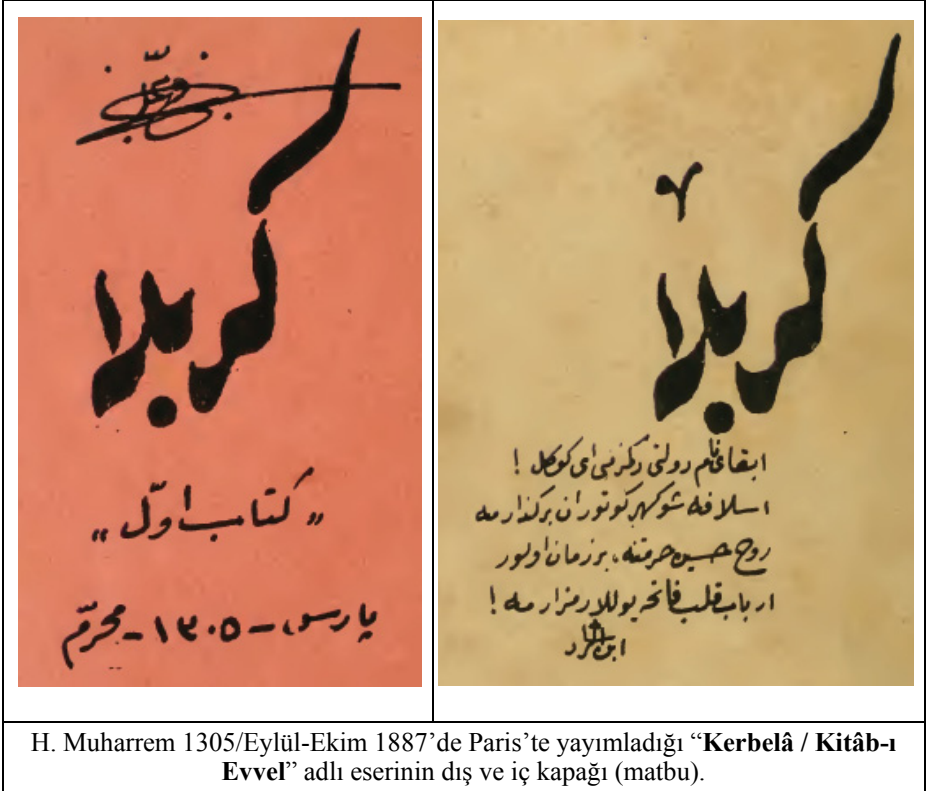 كربلا
„ كتاب اوّل „
پارس - ١٣٠٥ - محرّم
كربلا
ابقاى نام دولتى دكزمى اى كوكل !
اسلافه شوكهر كوتوران بركذارمه
روح حسين حرمتنه، بر زمان اولور
ارباب قلب فاتحه يوللار مزارمه !
H. Muharrem 1305/Eylül-Ekim 1887’de Paris’te yayımladığı “Kerbelâ / Kitâb-ı
Evvel” adlı eserinin dış ve iç kapağı (matbu).